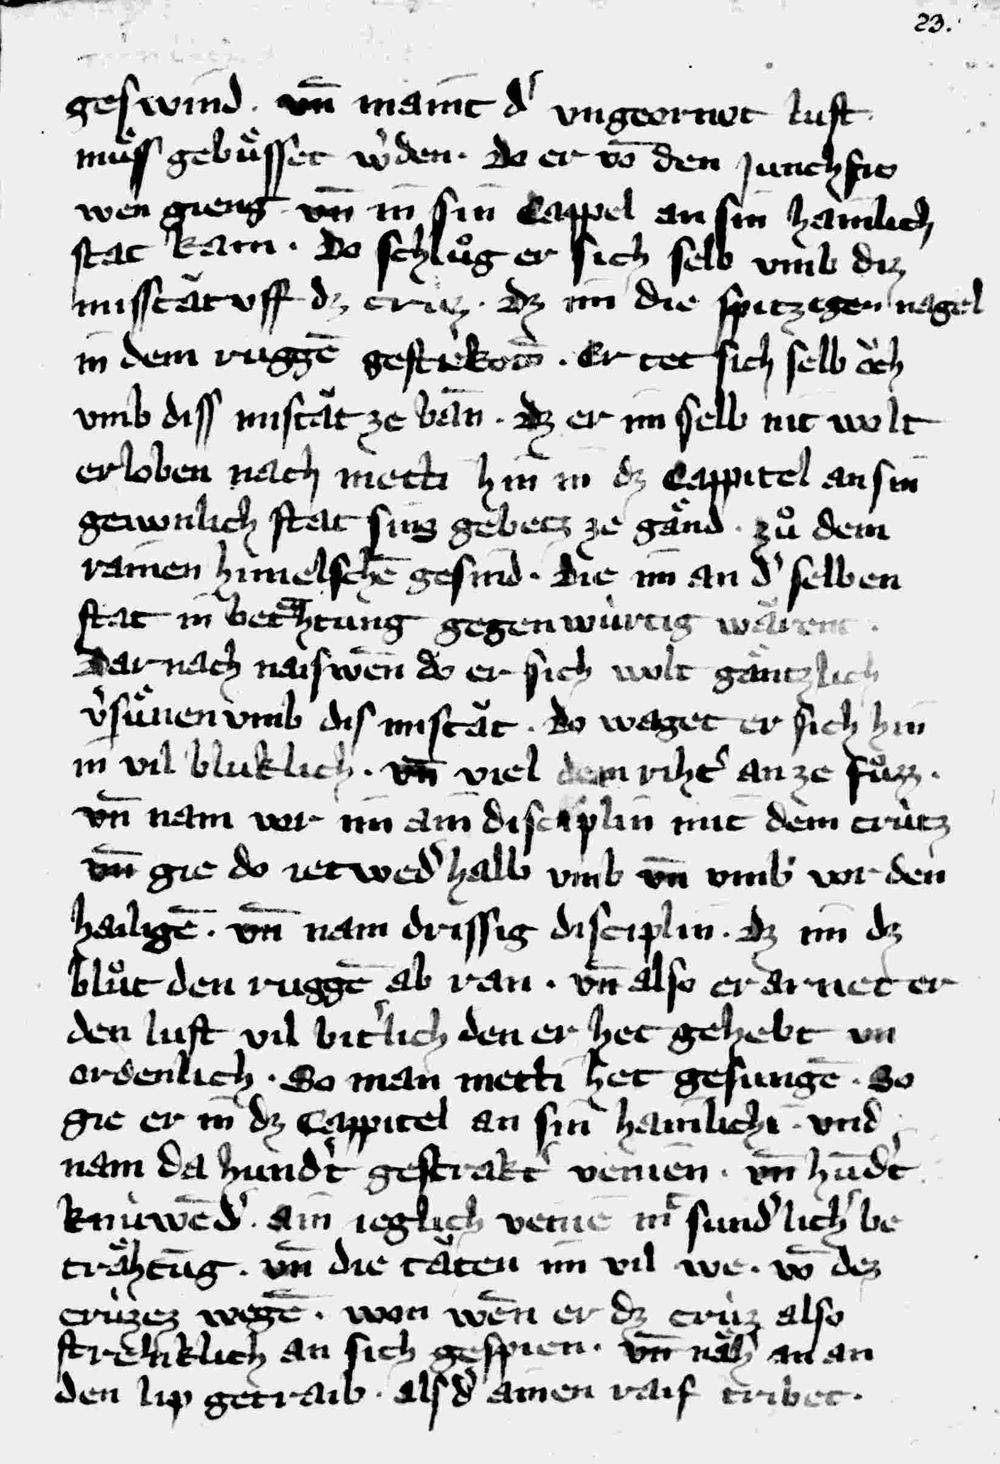 23.
geswind. vn̄ maint dˀ vngeornot luſt
muͤſſ gebuͤſſet wˀden. Do er vō den Junchfro
wen gieng vn̄ in ſin Cappel an ſin hainlich
ſtat kam. Do ſchluͦg er ſich ſelb vmb diz
miſſetaͤt vff dz crúz. Dz im die ſpitzigen nagel
in dem ruggē geſtekotō. Er tet ſich ſelb oͮch
vmb diſſ miſtaͤt ze ban̄. Dz er im ſelb nit wolt
erloben nach metti hin in dz Cappitel an ſin
gewnlich ſtat ſins gebetz ze gaͤnd. zuͦ dem
rainen himelſchē geſind. Die im an dˀ ſelben
ſtat in betrahtung gegenwúrtig waͤrent.
Dar nach naiſwen do er ſich wolt gaͤntzlich
vˀſuͤnen vmb dis miſtaͤt. Do waget er ſich hin
in vil bluklich. vn̄ viel dem rihtˀ an ze fuͦzz.
vn̄ nam vor im ain diſciplin mit dem crútz
vn̄ gie do ietwedˀhalb vmb vn̄ vmb vor den
hailigē. vn̄ nam driſſig diſciplin. dz im dz
bluͦt den ruggē ab ran. vn̄ alſo erarnet er
den luſt vil bitˀlich den er het gehebt vn
ordenlich. So man metti het geſungē. So
gie er in dz Cappitel an ſin hainlichi. vnd
nam da hundˀt geſtraktˀ venien. vn̄ hūdˀt
knúwēdˀ. ain ieglich venie mᵗ ſundˀlichˀ be
traͤhtūg. vn̄ die taͤten im vil we. vō dez
crúzez wegē. won wen er dz crúz alſo
ſtrenklich an ſich geſpien. vn̄ naͤhˀ an an
den lip getraib. als dˀ ainen raif tribet.